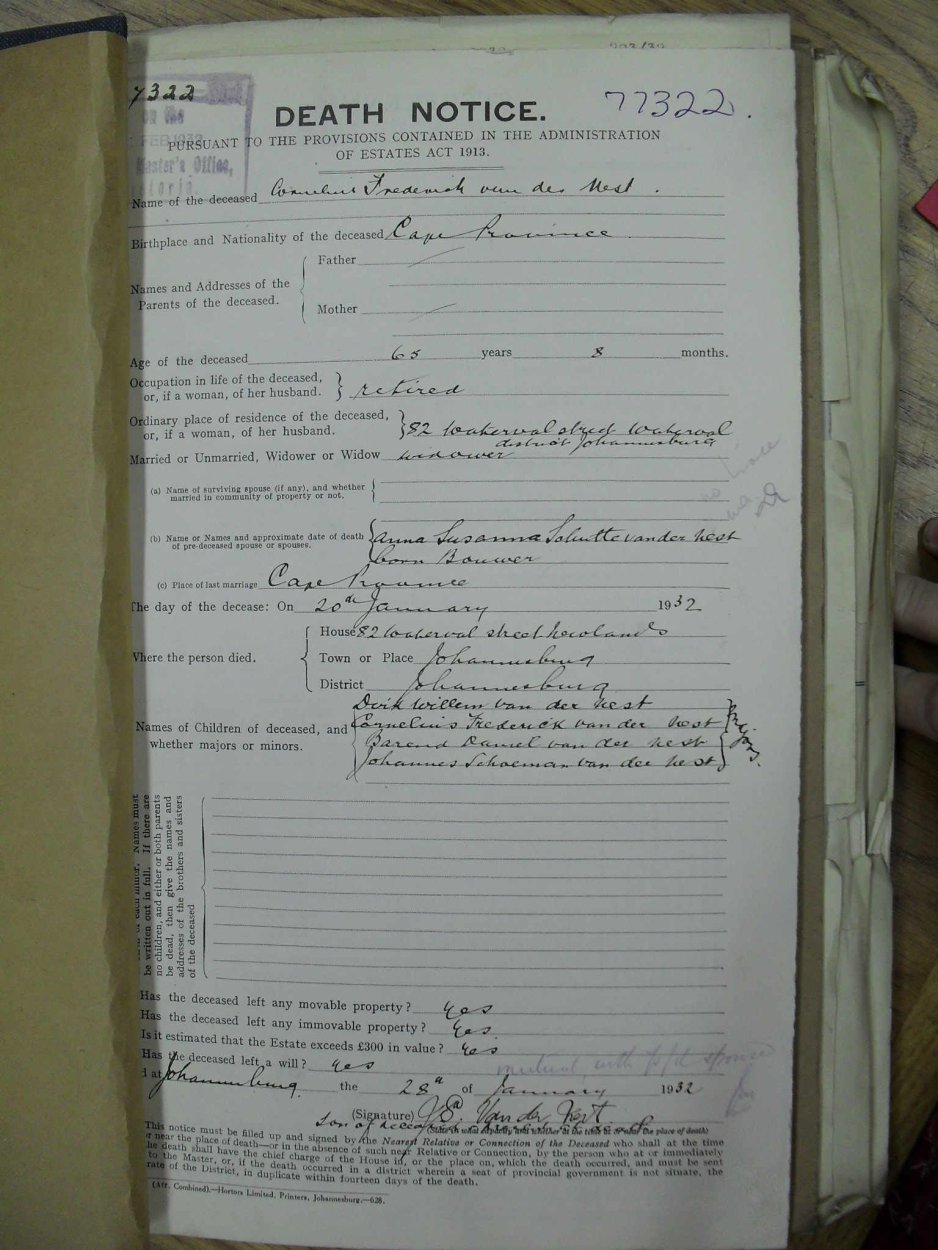 7322
77322.
on the
FEB 1932
Master's Office,
DEATH NOTICE.
PURSUANT TO THE PROVISIONS CONTAINED IN THE ADMINISTRATION
OF ESTATES ACT 1913.
Name of the deceased Cornelius Frederick van der Nest.
Birthplace and Nationality of the deceased Cape Province
Names and Addresses of the
Parents of the deceased.
Father
Mother
Age of the deceased 65 years 8 months.
Occupation in life of the deceased,
or, if a woman, of her husband. retired
Ordinary place of residence of the deceased,
or, if a woman, of her husband. 82 Waterval street Waterval
district Johannesburg
Married or Unmarried, Widower or Widow widower
(a) Name of surviving spouse (if any), and whether
married in community of property or not.
(b) Name or Names and approximate date of death
of pre-deceased spouse or spouses.
Anna Susanna Schutte van der Nest
born Bouwer
(c) Place of last marriage Cape Province
The day of the decease: On 20th January 1932
Where the person died.
House 82 Waterval street Newlands
Town or Place Johannesburg
District Johannesburg
Names of Children of deceased, and
whether majors or minors.
Dirk Willem van der Nest
Cornelius Frederick van der Nest
Barend Daniel van der Nest
Johannes Schoeman van der Nest
Majors.
of each minor. Names must
be written out in full. If there are
no children, and either or both parents
be dead, then give the names and
addresses of the brothers and sisters
of the deceased
Has the deceased left any movable property? yes
Has the deceased left any immovable property? yes
Is it estimated that the Estate exceeds £300 in value? yes
Has the deceased left a will? yes
mutual, with p/d spouse
d at Johannesburg the 28th of January 1932
(Signature) Van der Nest
son of deceased
(State in what capacity and whether at the time in or near the place of death)
This notice must be filled up and signed by the Nearest Relative or Connection of the Deceased who shall at the time
or near the place of death—or in the absence of such near Relative or Connection, by the person who at or immediately
the death shall have the chief charge of the House in, or the place on, which the death occurred, and must be sent
to the Master, or, if the death occurred in a district wherein a seat of provincial government is not situate, the
rate of the District, in duplicate within fourteen days of the death.
(Afr. Combined).—Hortors Limited, Printers, Johannesburg.—628.